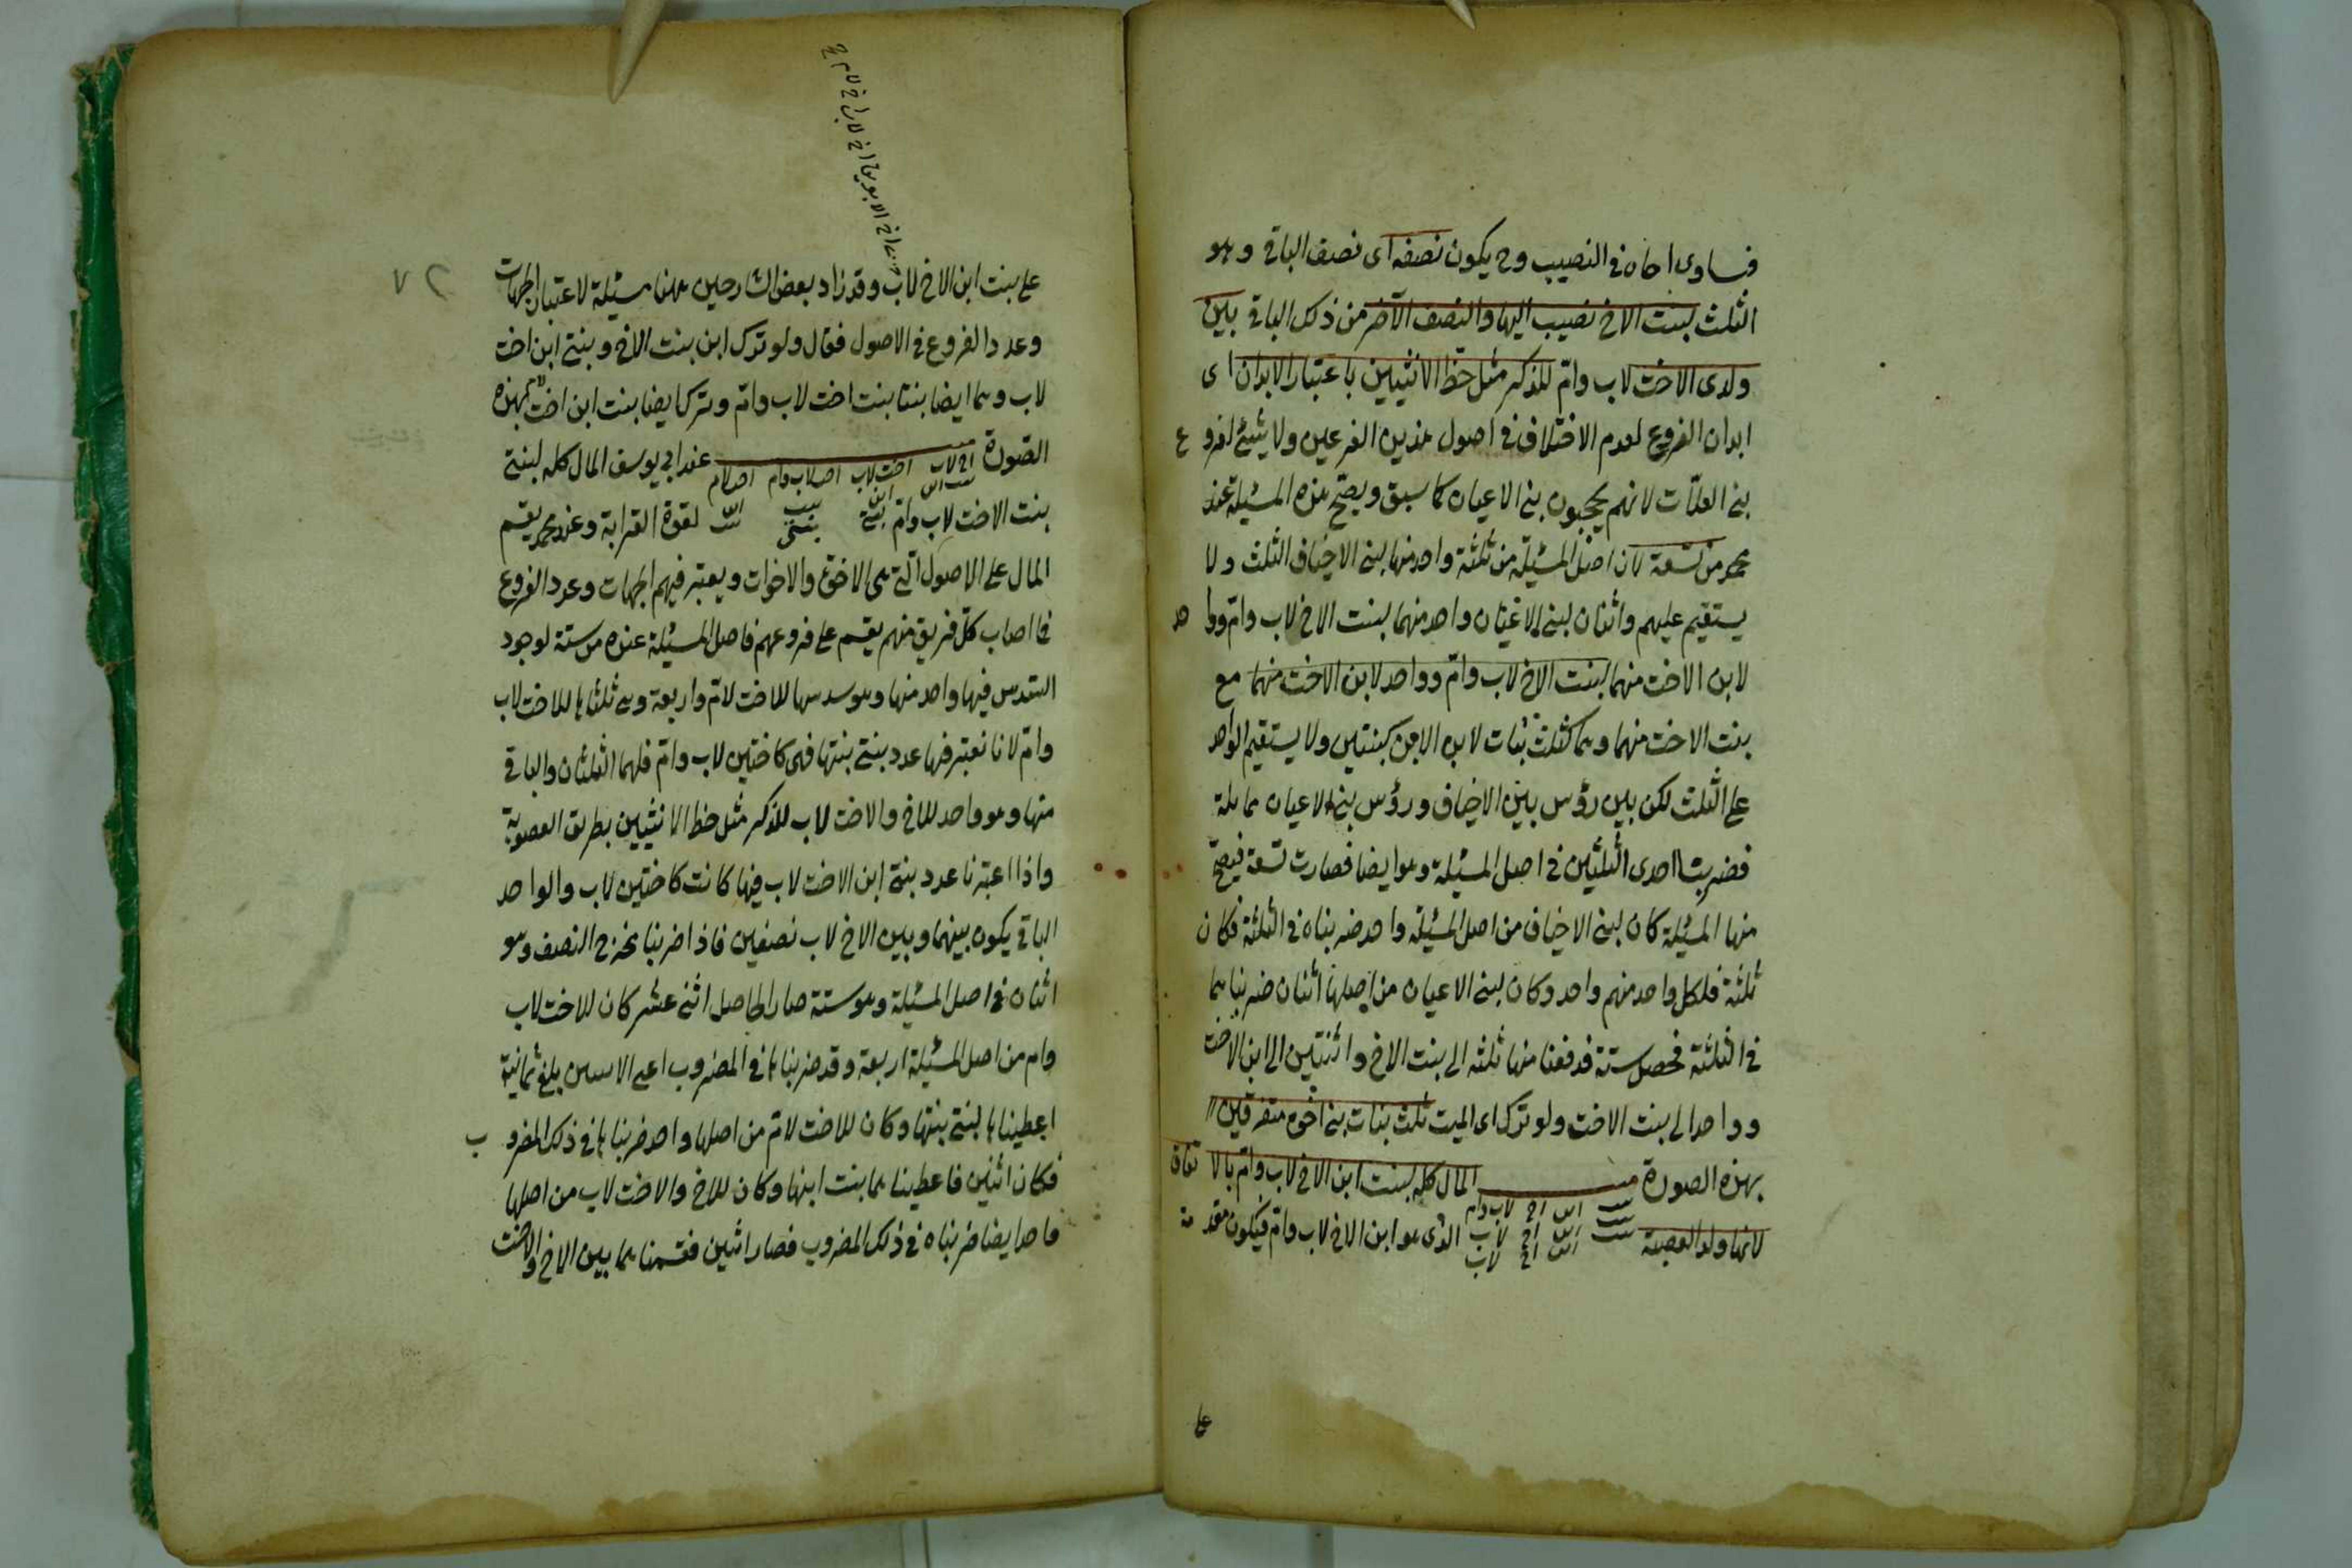 فساوى اخاه فى النصيب وح يكون نصفه اى نصف الباقى وهو
الثلث لبنت الاخ نصيب ابيها والنصف الآخر من ذلك الباقى بين
ولدى الاخت لاب وامّ للذكر مثل حظّ الانثيين باعتبار الابدان اى
ابدان الفروع لعدم الاختلاف فى اصول هذين الفرعين ولا شيئ لفروع
بنى العلّات لانهم يحجبون ببنى الاعيان كما سبق ويصحّ هذه المسئلة عند
محمد من تسعة لان اصل المسئلة من ثلثة واحد منها لبنى الاخياف الثلث ولا
يستقيم عليهم واثنان لبنى الاعيان واحد منهما لبنت الاخ لاب وامّ وواحد
لابن الاخت منهما لبنت الاخ لاب وامّ وواحد لابن الاخت منهما مع
بنت الاخت منهما وهما كثلث بنات لان الابن كبنتين ولا يستقيم الواحد
على الثلث لكن بين رؤس بنى الاخياف ورؤس بنى الاعيان مماثلة
فضربت احدى الثلثين فى اصل المسئلة وهو ايضا فصارت تسعة فيصحّ
منها المسئلة كان لبنى الاخياف من اصل المسئلة واحد ضربناه فى الثلثة فكان
ثلثة فلكل واحد منهم واحد وكان لبنى الاعيان من اصلها اثنان ضربناهما
فى الثلثة فحصل ستة فدفعنا منها ثلثه الى بنت الاخ واثنتين الى ابن الاخت
وواحد الى بنت الاخت ولو ترك اى الميت ثلث بنات بنى اخوة متفرقين
بهذه الصورة المال كله لبنت ابن الاخ لاب وامّ بالاتفاق
اخ لاب وام
لانها ولد العصبة الذى هو ابن الاخ لاب وامّ فيكون مقدمة
اخ لاب
على
على بنت ابن الاخ لاب وقد زاد بعض الشارحين ههنا مسئلة لاعتبار الجهات
وعدد الفروع فى الاصول فقال ولو ترك ابن بنت الاخ وبنتى ابن اخت
لاب وهما ايضا بنتا بنت اخت لاب وامّ وترك ايضا بنت ابن اخت لام بهذه
الصورة عند ابى يوسف المال كله لبنتى
اخ لاب اخت لاب اخت لاب وام اخت لام
بنت الاخت لاب وامّ لقوة القرابة وعند محمد يقسم
المال على الاصول التى هى الاخوة والاخوات ويعتبر فيهم الجهات وعدد الفروع
فما اصاب كلّ فريق منهم يقسم على فروعهم فاصل المسئلة عنده من ستة لوجود
السّدس فيها واحد منها وهو سدسها للاخت لامّ واربعة وهى ثلثاها للاخت لاب
وامّ لانا نعتبر فيها عدد بنتى بنتها فهى كاختين لاب وامّ فلهما الثلثان والباقى
منها وهو واحد للاخ والاخت لاب للذكر مثل حظ الانثيين بطريق العصوبة
واذا اعتبرنا عدد بنتى ابن الاخت لاب فيها كانت كاختين لاب والواحد
الباقى يكون بينهما وبين الاخ لاب نصفين فاذا ضربنا مخرج النصف وهو
اثنان فى اصل المسئلة وهو ستة صار الحاصل اثنى عشر كان للاخت لاب
وام من اصل المسئلة اربعة وقد ضربناها فى المضروب اعنى الاثنين بلغ ثمانية
اعطيناها لبنتى بنتها وكان للاخت لام من اصلها واحد ضربناها فى ذلك المضروب
فكان اثنين فاعطيناهما بنت ابنها وكان للاخ والاخت لاب من اصلها
واحد ايضا ضربناه فى ذلك المضروب فصار اثنين فقسمناهما بين الاخ والاخت
٧٢